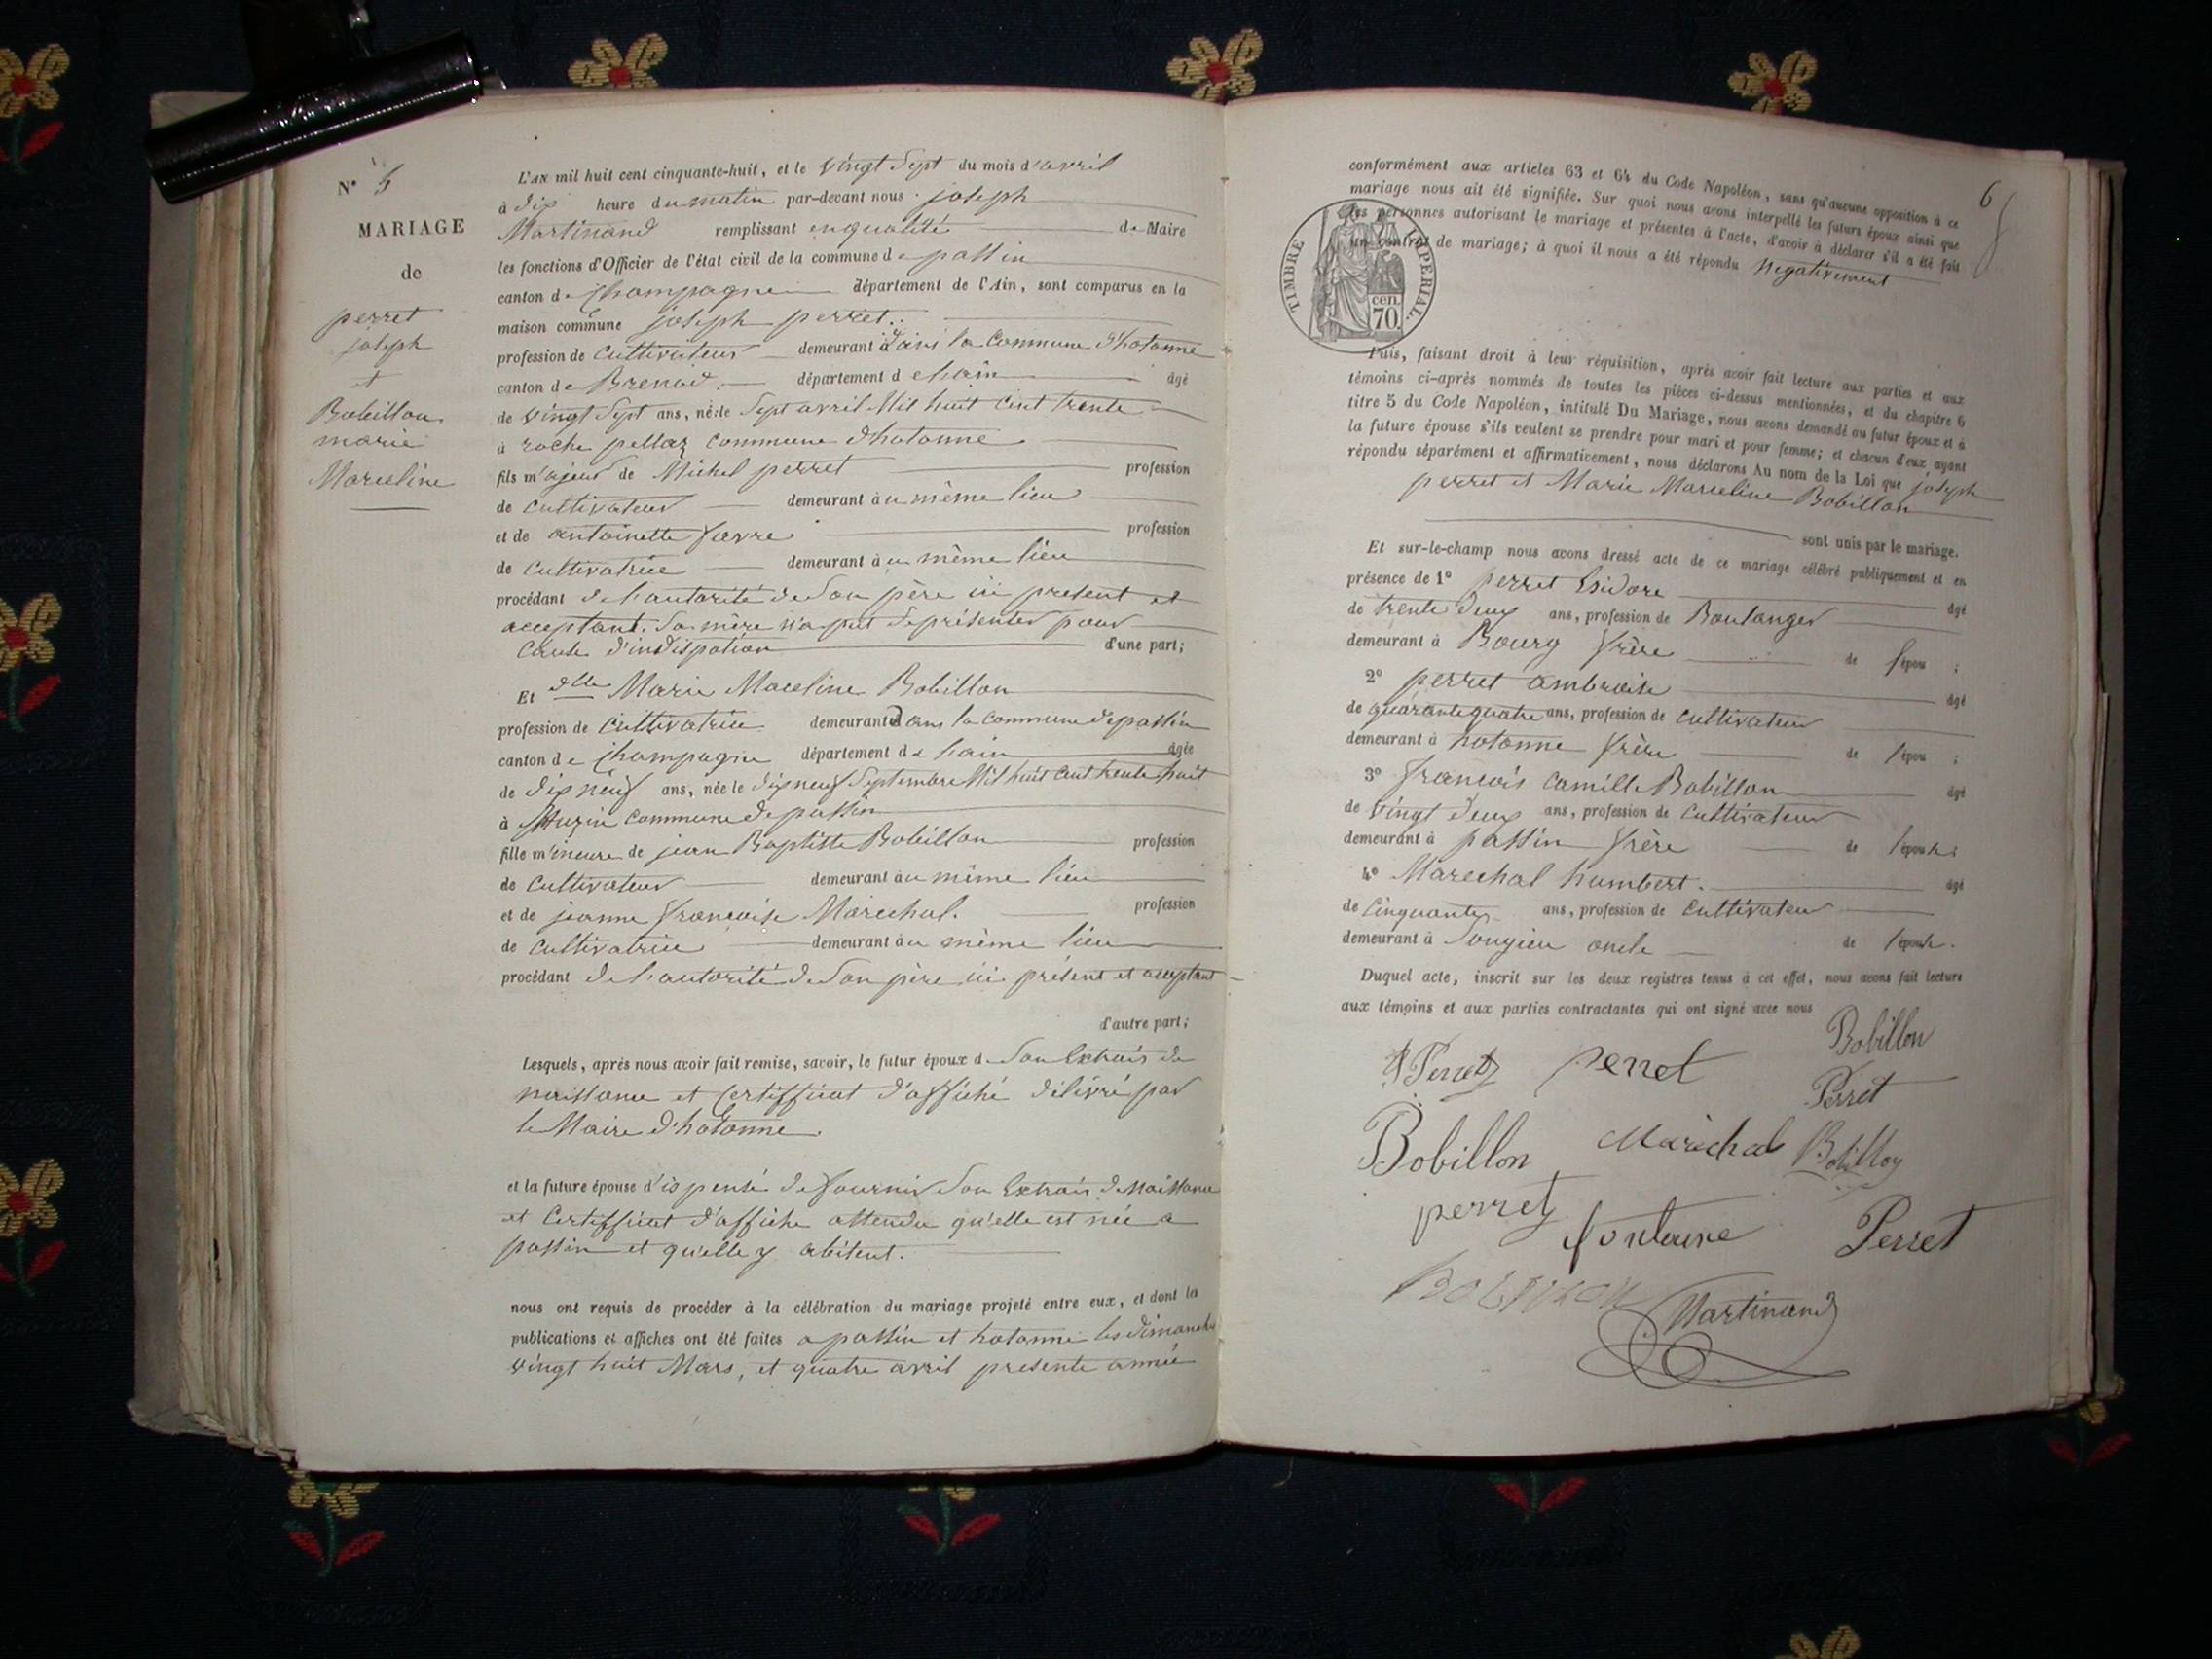 N° 5
MARIAGE
de
perret
joseph
et
Bobillon
marie
Marceline
L'AN mil huit cent cinquante-huit, et le vingt Sept du mois d'avril
à dix heure du matin par-devant nous joseph
Martinand remplissant en qualité de Maire
les fonctions d'Officier de l'état civil de la commune de passin
canton de Champagne département de l'Ain, sont comparus en la
maison commune joseph perret.
profession de cultivateur demeurant dans la Commune d'hotonne
canton de Brenod. département de hain âgé
de vingt Sept ans, né le Sept avril Mil huit Cent trente
à roche pellaz commune d'hotonne
fils majeur de Michel perret profession
de cultivateur demeurant au même lieu
et de antoinette favre profession
de cultivatrice demeurant au même lieu
procédant de l'autorité de Son père ici présent et
acceptant. Sa mère n'a put Se présenter pour
Cause d'indispotion d'une part;
Et dlle Marie Maceline Bobillon
profession de cultivatrice demeurant Dans la commune de passin
canton de Champagne département de hain âgée
de dix neuf ans, née le dix neuf Septembre Mil huit Cent trente huit
à Muzin commune de passin
fille mineure de jean Baptiste Bobillon profession
de cultivateur demeurant au même lieu
et de jeanne françoise Marechal. profession
de cultivatrice demeurant au même lieu
procédant de l'autorité de Son père ici présent et acceptant
d'autre part;
Lesquels, après nous avoir fait remise, savoir, le futur époux de Son Extrais de
naissance et Certifficat d'affiche délivré par
le Maire d'hotonne.
et la future épouse dispensé de fournir Son Extrais de Naissance
et Certifficat d'affiche attendu qu'elle est née a
passin et qu'elle y abitent.
nous ont requis de procéder à la célébration du mariage projeté entre eux, et dont les
publications et affiches ont été faites a passin et hotonne les dimanches
vingt huit Mars, et quatre avril presente année
6
conformément aux articles 63 et 64 du Code Napoléon, sans qu'aucune opposition à ce
mariage nous ait été signifiée. Sur quoi nous avons interpellé les futurs époux ainsi que
les personnes autorisant le mariage et présentes à l'acte, d'avoir à déclarer s'il a été fait
un contrat de mariage; à quoi il nous a été répondu Negativement
TIMBRE IMPERIAL.
cen.
70.
Puis, faisant droit à leur réquisition, après avoir fait lecture aux parties et aux
témoins ci-après nommés de toutes les pièces ci-dessus mentionnées, et du chapitre 6
titre 5 du Code Napoléon, intitulé Du Mariage, nous avons demandé au futur époux et à
la future épouse s'ils veulent se prendre pour mari et pour femme; et chacun d'eux ayant
répondu séparément et affirmativement, nous déclarons Au nom de la Loi que joseph
perret et Marie Marceline Bobillon
sont unis par le mariage.
Et sur-le-champ nous avons dressé acte de ce mariage célébré publiquement et en
présence de 1° perret Esidore âgé
de trente Deux ans, profession de Boulanger
demeurant à Bourg frère de l'épou ;
2° perret ambroise âgé
de quarante quatre ans, profession de cultivateur
demeurant à hotonne frère de l'épou ;
3° françois Camille Bobillon âgé
de vingt Deux ans, profession de cultivateur
demeurant à passin frère de l'épouse;
4° Marechal humbert. âgé
de Cinquante ans, profession de Cultivateur
demeurant à Songieu oncle de l'épouse.
Duquel acte, inscrit sur les deux registres tenus à cet effet, nous avons fait lecture
aux témoins et aux parties contractantes qui ont signé avec nous
Bobillon
Perret perret
Perret
Bobillon Maréchal Bobillon
perret
fontaine Perret
BOBILLON
Martinand